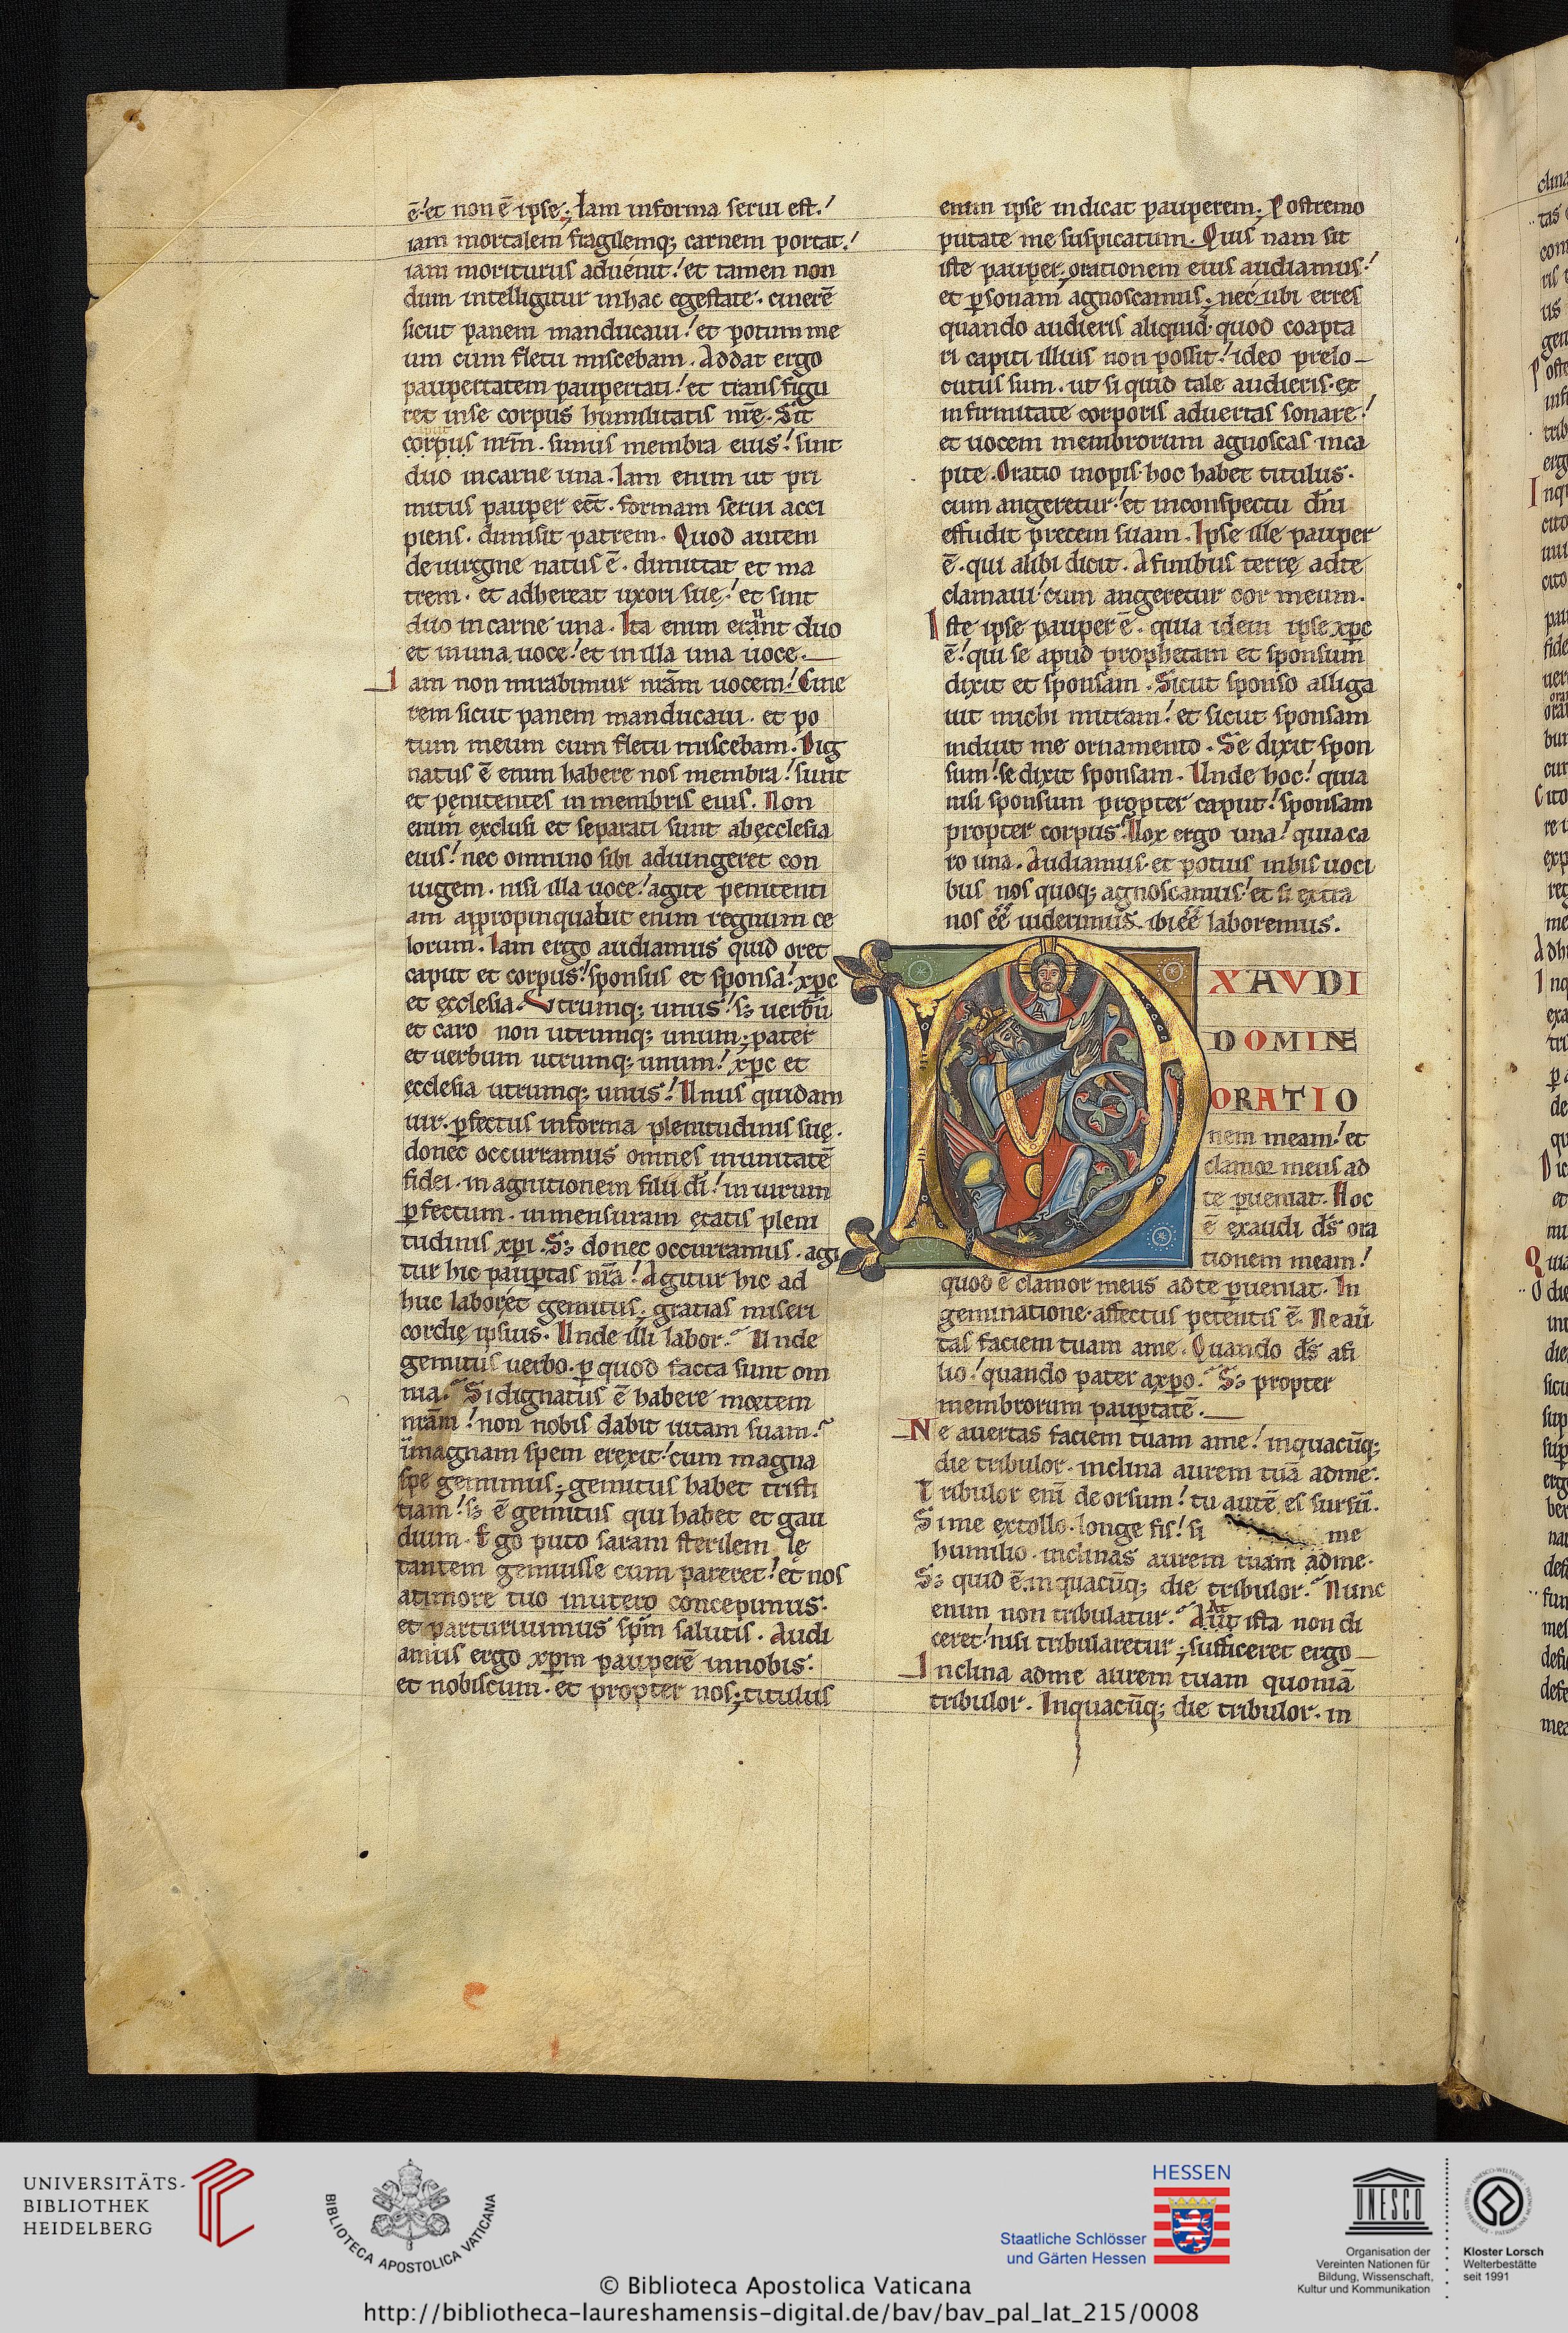 ē! et non ē ipse; Iam informa serui est.!
iam mortalem fragilemq; carnem portat.!
iam moriturus aduenit! et tamen non
dum intelligitur inhac egestate. cinerē
sicut panem manducaui! et potum me
um cum fletu miscebam. Addat ergo
paupertatem paupertati! et transfigu
ret inse corpus humilitatis nr̄ę. Sit
corpus nrm̄. simus membra eius! sint
duo incarne una. Iam enim ut pri
mitus pauper eēt. formam serui acci
piens. dimisit patrem. Quod autem
de uirgine natus ē. dimittat et ma
trem. et adhereat uxori suę! et sint
duo incarne una. Ita enim erunt duo
et inuna uoce! et inilla una uoce.
Iam non mirabimur nrām uocem! Cine
rem sicut panem manducaui. et po
tum meum cum fletu miscebam. Dig
natus ē enim habere nos membra! sunt
et penitentes inmembris eius. Non
enim exclusi et separati sunt abęcclesia
eius! nec omnino sibi adiungeret con
iugem. nisi illa uoce! agite penitenti
am appropinquabit enim regnum ce
lorum. Iam ergo audiamus quid oret
caput et corpus! sponsus et sponsa! xp̄c
et ęcclesia. Vtrumq; unus! s; uerbū
et caro non utrumq; unum; pater
et uerbum utrumq; unum! xp̄c et
ęcclesia utrumq; unus! Unus quidam
uir. ꝑfectus informa plenitudinis suę.
donec occurramus omnes inunitatē
fidei. inagnitionem filii dī! inuirum
ꝑfectum. inmensuram ętatis pleni
tudinis xp̄i. S; donec occurramus. agi
tur hic pauꝑtas nrā! Agitur hic ad
huc labor et gemitus; gratias miseri
cordię ipsius. Unde illi labor. Unde
gemitus uerbo. ꝑ quod facta sunt om
nia. Si dignatus ē habere mortem
nrām! non nobis dabit uitam suam.
Inmagnam spem erexit! cum magna
spe gemimus; gemitus habet tristi
tiam! s; ē gemitus qui habet et gau
dium. Ego puto saram sterilem lę
tantem gemuisse cum pareret! et nos
atimore tuo inutero concepimus.
et parturiuimus sp̄m salutis. Audi
amus ergo xp̄m pauperē innobis.
et nobiscum. et propter nos; titulus
enim ipse indicat pauperem; Postremo
putate me suspicatum. Quis nam sit
iste pauper; orationem eius audiamus!
et ꝑsonam agnoscamus; nec ubi erres
quando audieris aliquid. quod coapta
ri capiti illius non possit! ideo prelo
cutus sum. ut si quid tale audieris. ex
infirmitate corporis aduertas sonare!
et uocem membrorum agnoscas inca
pite. Oratio inopis. hoc habet titulus.
cum angeretur! et inconspectu dn̄i
effudit precem suam. Ipse ille pauper
ē. qui alibi dicit. Afinibus terrę adte
clamaui! cum angeretur cor meum.
Iste ipse pauper ē. quia idem ipse xp̄c
ē! qui se apud prophetam et sponsum
dixit et sponsam. Sicut sponso alliga
uit michi mitram! et sicut sponsam
induit me ornamento. Se dixit spon
sum! se dixit sponsam. Unde hoc! quia
nisi sponsum propter caput! sponsam
propter corpus. Uox ergo una! quia ca
ro una. Audiamus. et potius inhis uoci
bus nos quoq; agnoscamus! et si extra
nos eē uiderimus. ibi eē laboremus.
XAVDI
DOMINE
ORATIO
nem meam! et
clamor meus ad
te ꝑueniat. Hoc
ē exaudi ds̄ ora
tionem meam!
quod ē clamor meus adte ꝑueniat. In
geminatione. affectus petentis ē. Ne auer
tas faciem tuam ame. Quando ds̄ afi
lio! quando pater axp̄o. S; propter
membrorum pauꝑtatē.
Ne auertas faciem tuam ame! inquacūq;
die tribulor. inclina aurem tuā adme.
Tribulor enī deorsum! tu autē es sursū.
Si me extollo. longe fis! si me
humilio. inclinas aurem tuam adme.
S; quid ē. inquacūq; die tribulor. Nunc
enim non tribulatur. Aut ista non di
ceret! nisi tribularetur; sufficeret ergo
Inclina adme aurem tuam quoniā
tribulor. Inquacūq; die tribulor. in
UNIVERSITÄTS-
BIBLIOTHEK
HEIDELBERG
BIBLIOTECA APOSTOLICA VATICANA
HESSEN
Staatliche Schlösser
und Gärten Hessen
UNESCO
Organisation der
Vereinten Nationen für
Bildung, Wissenschaft,
Kultur und Kommunikation
Kloster Lorsch
Welterbestätte
seit 1991
© Biblioteca Apostolica Vaticana
http://bibliotheca-laureshamensis-digital.de/bav/bav_pal_lat_215/0008